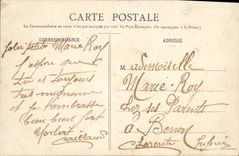 CARTE POSTALE
La Correspondance au recto n'est pas acceptée par tous les Pays Étrangers (Se renseigner à la Poste)
CORRESPONDANCE
ADRESSE
Jolie petite Marie Roy
J'espère que
tu es toujours
très mignonne
et je t'embrasse
bien bien fort
Norbert
Mademoiselle
Marie Roy
chez ses Parents
à Benon
Charente Inférieure